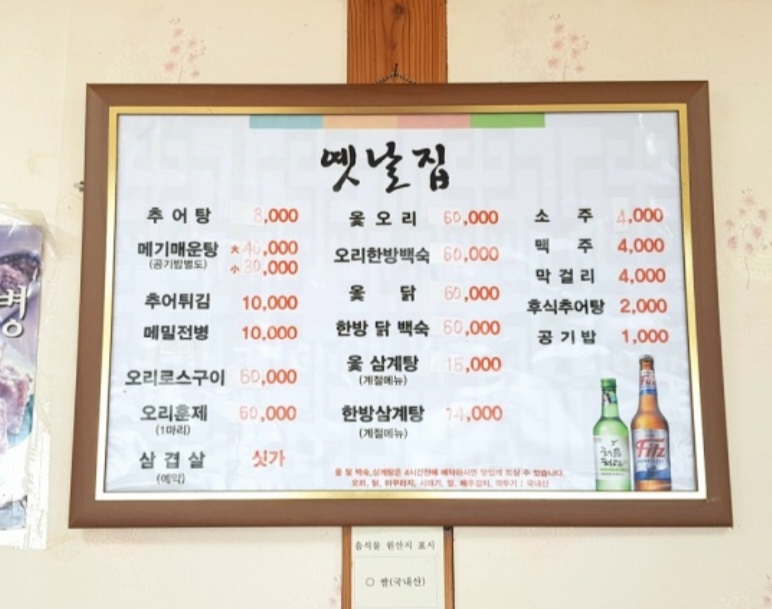 옛날집
추어탕 8,000
메기매운탕 大 40,000
(공기밥별도) 小 30,000
추어튀김 10,000
메밀전병 10,000
오리로스구이 60,000
오리훈제 60,000
(1마리)
삼겹살 싯가
(예약)
옻오리 60,000
오리한방백숙 60,000
옻닭 60,000
한방 닭 백숙 60,000
옻 삼계탕 15,000
(계절메뉴)
한방삼계탕 14,000
(계절메뉴)
소주 4,000
맥주 4,000
막걸리 4,000
후식추어탕 2,000
공기밥 1,000
옻 및 백숙,삼계탕은 4시간전에 예약하시면 맛있게 드실 수 있습니다.
오리, 닭, 미꾸라지, 시래기, 쌀, 배추김치, 깍두기 : 국내산
처음
처럼
Fitz
병
음식물 원산지 표시
○ 쌀(국내산)